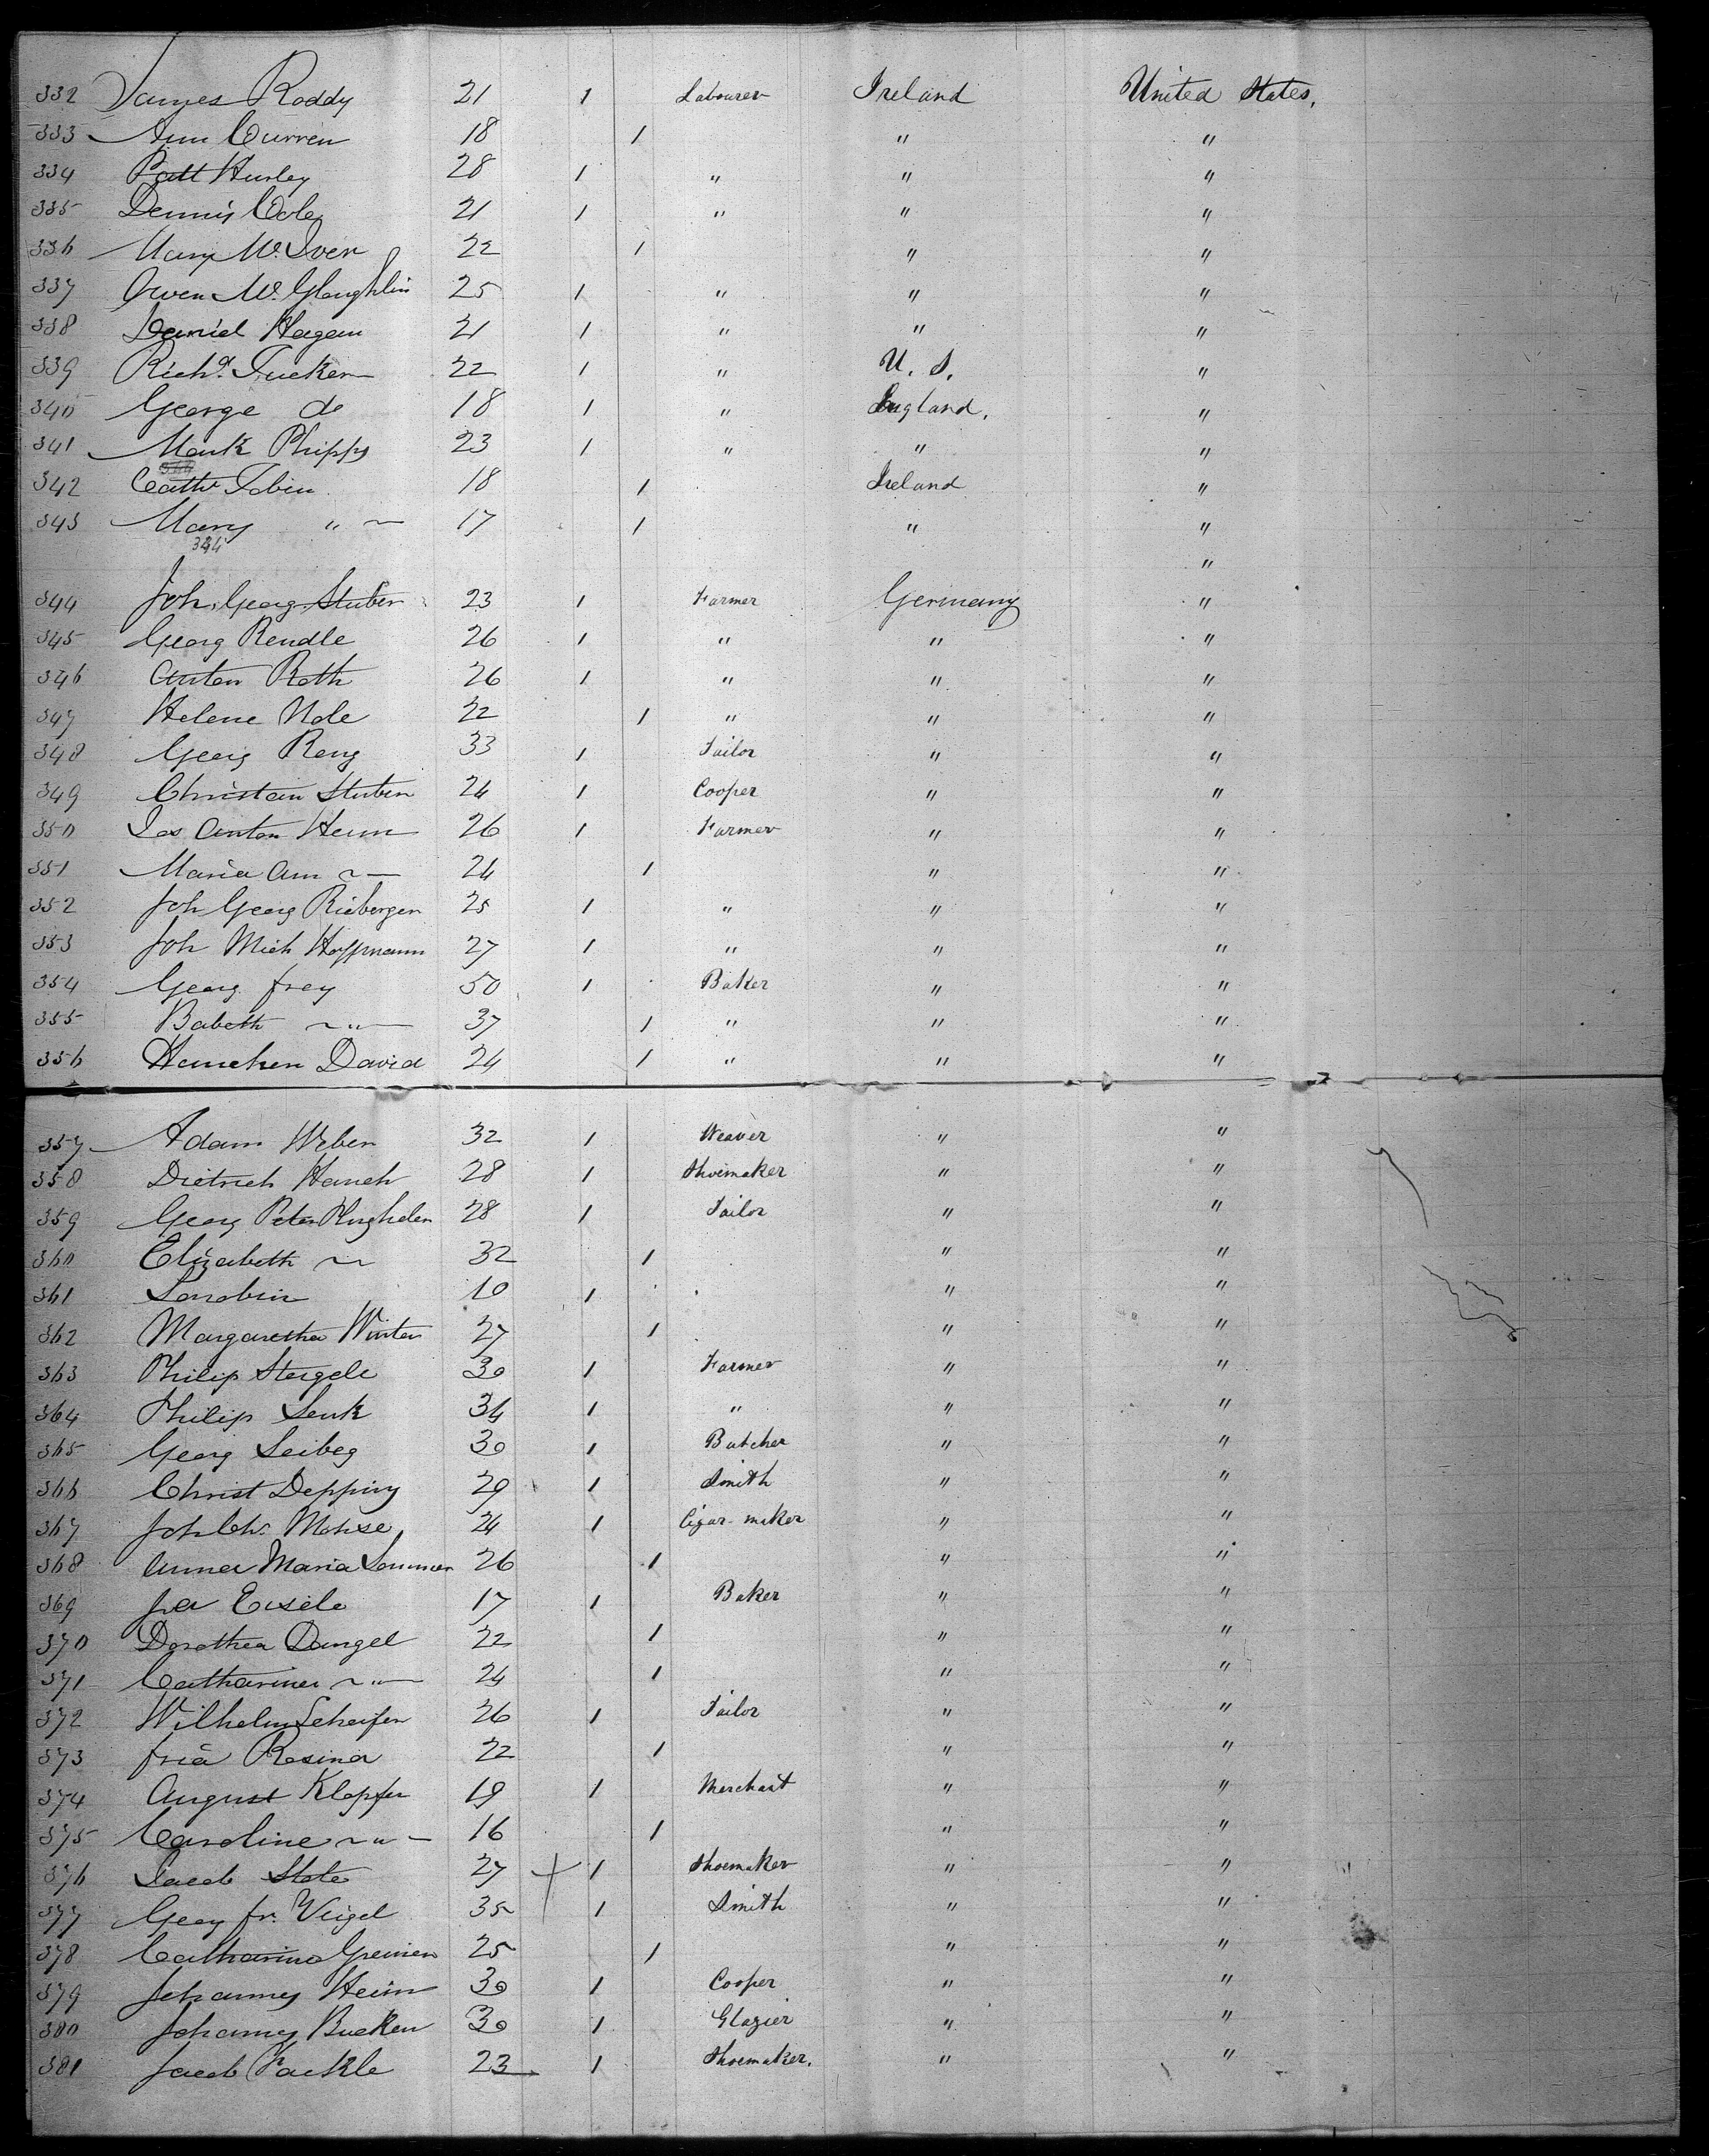 332 James Roddy 21 1 Labourer Ireland United States.
333 Ann Curren 18 1 " "
334 Patt Hurley 28 1 " " "
335 Dennis Cole 21 1 " " "
336 Mary Mc. Iver 22 1 " "
337 Owen Mc. Glaughlin 25 1 " " "
338 Daniel Hagan 21 1 " " "
339 Richd. Tucker 22 1 " U. S. "
340 George do 18 1 " England. "
341 Mark Phipps 23 1 " " "
342 Cathe Tobin 18 1 Ireland "
343 Mary " 17 1 " "
344 "
344 Joh. Georg Stuber 23 1 Farmer Germany "
345 Georg Rendle 26 1 " " "
346 Anton Roth 26 1 " " "
347 Helene Nole 22 1 " " "
348 Georg Reng 33 1 Tailor " "
349 Christain Stuber 24 1 Cooper " "
350 Jos Anton Heim 26 1 Farmer " "
351 Maria Ann 24 1 " "
352 Joh Georg Rieberger 25 1 " " "
353 Joh Mich Hoffmann 27 1 " " "
354 Georg Frey 50 1 Baker " "
355 Babeth " 37 1 " " "
356 David 24 1 " " "
357 Adam Weber 32 1 Weaver " "
358 Dietrich Hanch 28 1 Shoemaker " "
359 Georg Peter 28 1 Tailor " "
360 Elizabeth 32 1 " "
361 10 1 " "
362 Margaretha Winter 27 1 " "
363 Philip Steigele 30 1 Farmer " "
364 Philip Senk 34 1 " " "
365 Georg Seibeg 30 1 Butcher " "
366 Christ Depping 29 1 Smith " "
367 Joh Chr. Mohse 24 1 Cigar-maker " "
368 Anna Maria Sommer 26 1 " "
369 Eisele 17 1 Baker " "
370 Dorothea Dangel 22 1 " "
371 Catharina " 24 1 " "
372 Wilhelm Scheifer 26 1 Tailor " "
373 Rosina 22 1 " "
374 August Klopfer 19 1 Merchant " "
375 Caroline " 16 1 " "
376 Jacob Stote 27 1 Shoemaker " "
377 Georg fr. Veigel 35 1 Smith " "
378 Catharina Greiner 25 1 " "
379 Johannes Heim 30 1 Cooper " "
380 Johannes Bucken 30 1 Glazier " "
381 Jacob Fackle 23 1 Shoemaker. " "